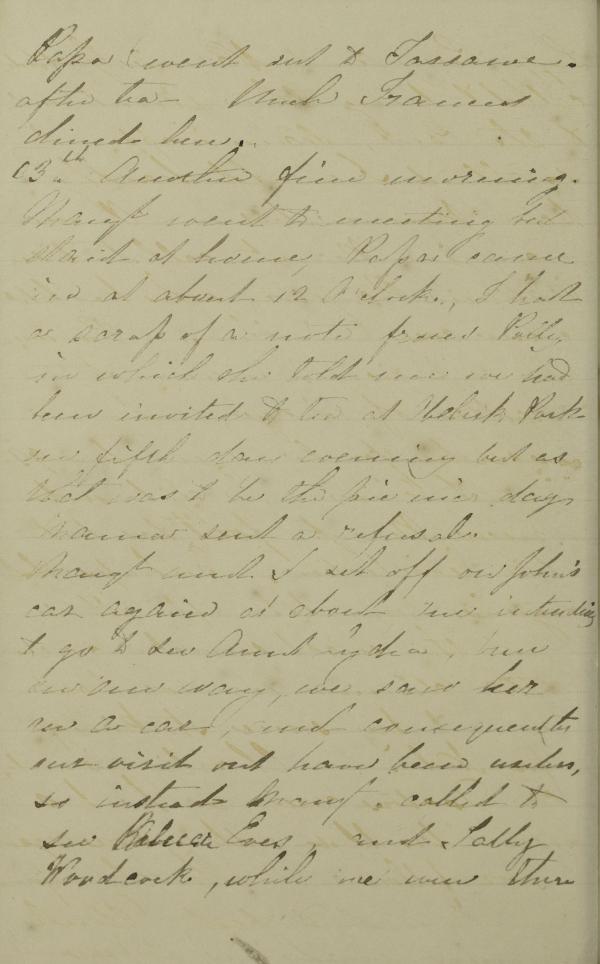 Papa went out to Tassawe.
after tea - Uncle Frances
dined here.
13.th Another fine morning.
Margt went to meeting but
staid at home, Papa came
in at about 12 O'clock, I had
a scrap of a note from Polly,
in which she told me we had
been invited to tea at Park
on fifth day evening but as
that was to be the pic nic day
Mama sent a refusal.
Margt and I set off on John's
car again at about intending
to go to see Aunt Lydia, but
on our way, we saw her
on a car, and consequently
our visit out have been useless,
so instead Margt. called to
see Rebecca Eves, and Sally
Woodcock, while we were there